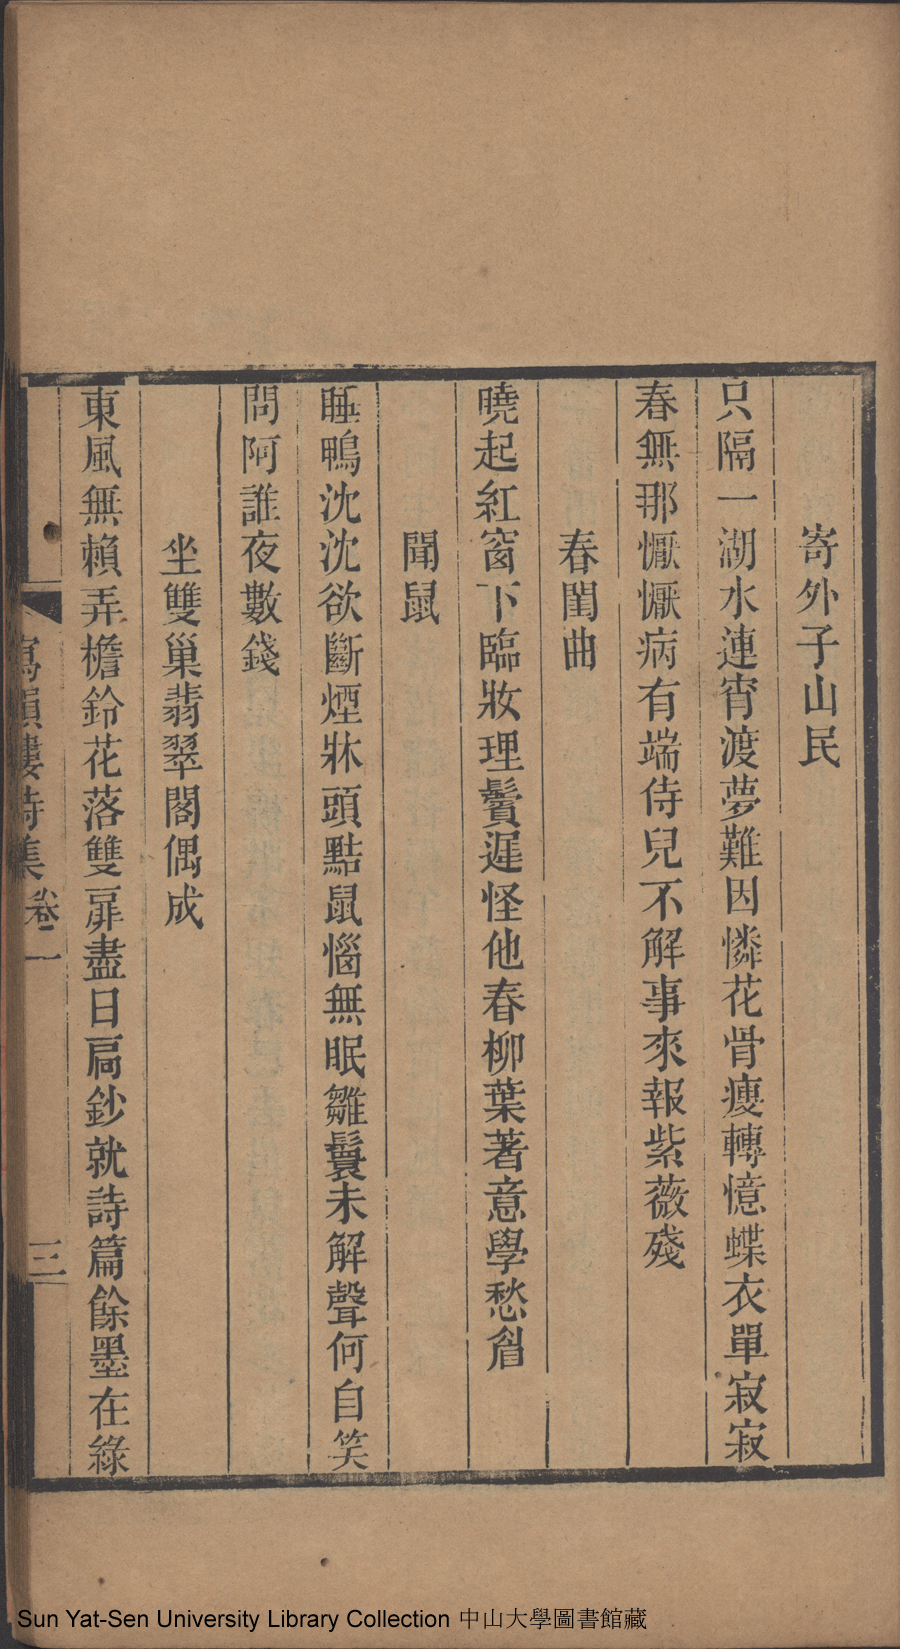 寄外子山民
只隔一湖水連宵渡夢難因憐花骨瘦轉憶蝶衣單寂寂
春無那懨懨病有端侍兒不解事來報紫薇殘
春閨曲
曉起紅窗下臨妝理鬢遲怪他春柳葉著意學愁眉
聞鼠
睡鴨沈沈欲斷煙牀頭黠鼠惱無眠雛鬟未解聲何自笑
問阿誰夜數錢
坐雙巢翡翠閣偶成
東風無賴弄檐鈴花落雙扉盡日扃鈔就詩篇餘墨在綠
寫韻樓詩集 卷一 三
Sun Yat-Sen University Library Collection 中山大學圖書館藏